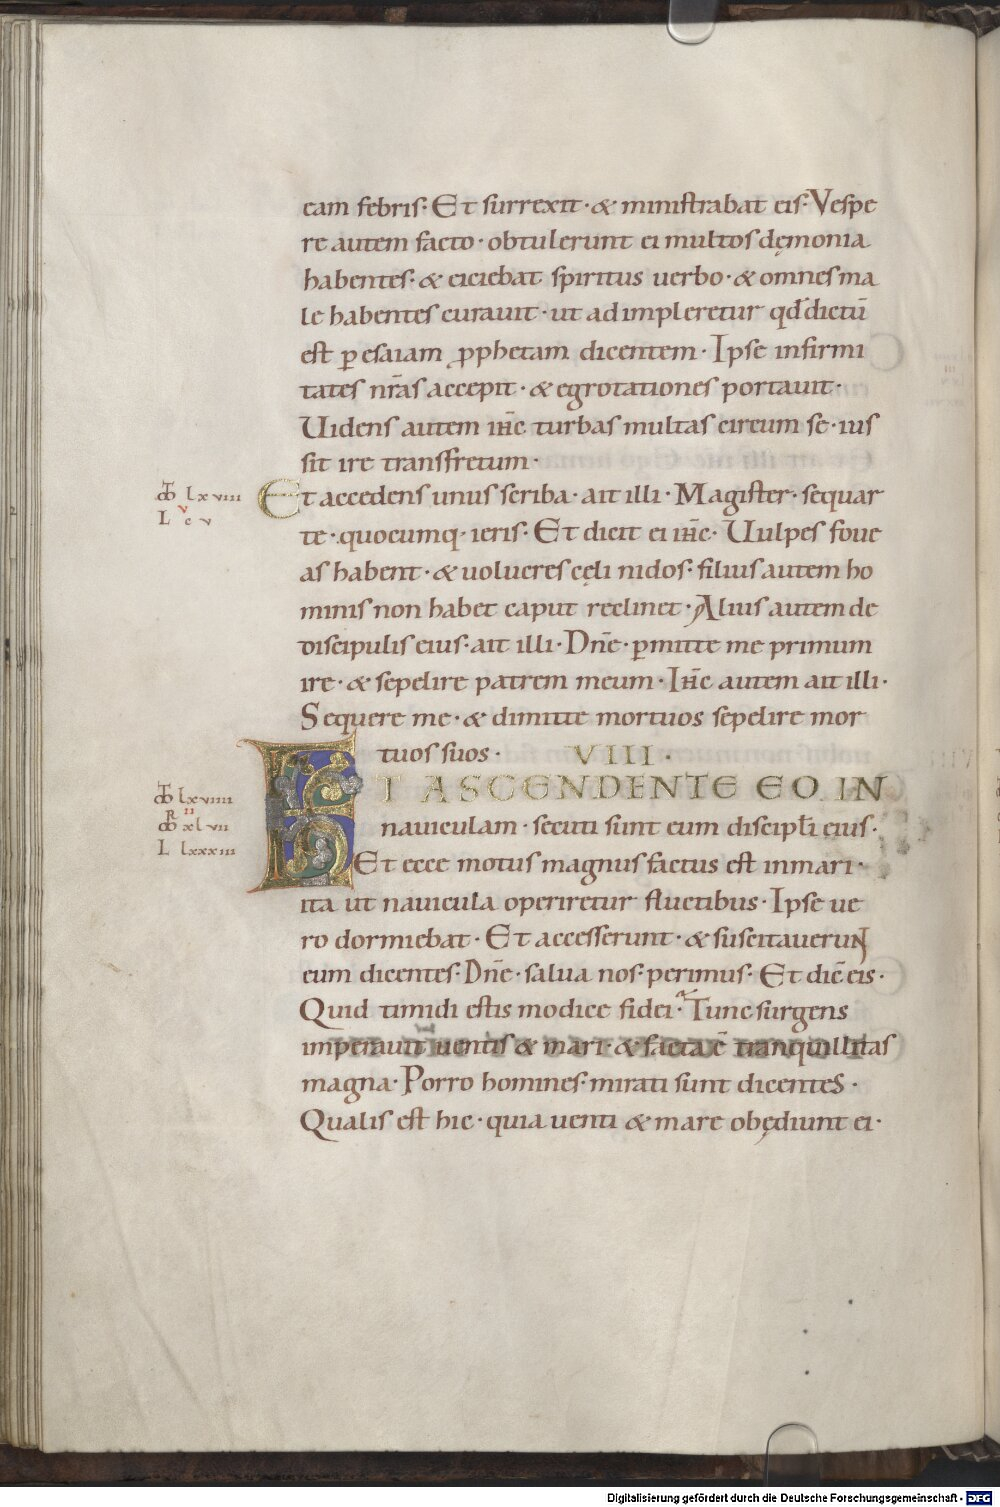 eam febris· Et surrexit · & ministrabat eis· Vespe
re autem facto · obtulerunt ei multos dęmonia
habentes· & eiciebat spiritus verbo · & omnes ma
le habentes curavit · ut adimpleretur qđ dictū
est ꝑ esaiam ꝓphetam dicentem · Ipse infirmi
tates nr̄as accepit · & egrotationes portavit·
Uidens autem ih̅c turbas multas circum se · ius
sit ire transfretum·
Ꝏ lxviii
L v c v
Et accedens unus scriba · ait illi · Magister · sequar
te · quocumq· ieris · Et dicit ei ih̅c· Uulpes fove
as habent · & uolucres cęli nidos· filius autem ho
minis non habet caput reclinet · Alius autem de
discipulis eius· ait illi · Dn̄e · ꝑmitte me primum
ire · & sepelire patrem meum · Ih̅c autem ait illi ·
Sequere me · & dimitte mortuos sepelire mor
tuos suos · VIII ·
Ꝏ lxviiii
R ii
Ꝏ xlvii
L lxxxiii
ET ASCENDENTE EO IN
naviculam · secuti sunt eum discipl̄i eius·
Et ecce motus magnus factus est in mari ·
ita ut navicula operiretur fluctibus · Ipse ve
ro dormiebat · Et accesserunt · & suscitaverunt
eum dicentes· Dn̄e · salva nos· perimus · Et dic̄ eis·
Quid timidi estis modice fidei · Tunc surgens
imperavit ventis & mari · & facta ē tranquillitas
magna· Porro homines· mirati sunt dicentes ·
Qualis est hic · quia venti & mare obędiunt ei·
Digitalisierung gefördert durch die Deutsche Forschungsgemeinschaft - DFG